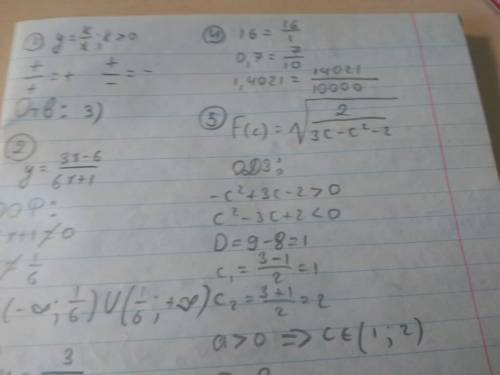 ① y = k/x; k > 0
+/+ = +   +/- = -
Отв: 3)
② y = (3x-6)/(6x+1)
ООФ:
x+1 ≠ 0
≠ 1/6
(-∞; 1/6) ∪ (1/6; +∞)
3
④ 16 = 16/1
0,7 = 7/10
1,4021 = 14021/10000
⑤ F(c) = √(2/(3c-c²-2))
ОДЗ:
-c²+3c-2 > 0
c²-3c+2 < 0
D = 9-8 = 1
c₁ = (3-1)/2 = 1
c₂ = (3+1)/2 = 2
a > 0 ⇒ c ∈ (1; 2)